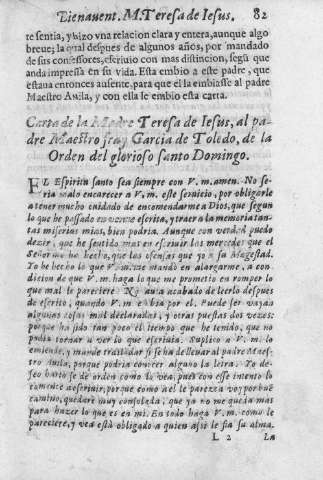 Bienauent. M. Teresa de Iesus. 82
te sentia, y hizo vna relacion clara y entera, aunque algo
breue; la qual despues de algunos años, por mandado
de sus confessores, escriuio con mas distincion, segũ que
anda impressa en su vida. Esta embio a este padre, que
estaua entonces ausente, para que el la embiasse al padre
Maestro Auila, y con ella le embio esta carta.
Carta de la Madre Teresa de Iesus, al pa-
dre Maestro fray Garcia de Toledo, de la
Orden del glorioso santo Domingo.
EL Espiritu santo sea siempre con V. m. amen. No se-
ria malo encarecer a V. m. este seruicio, por obligarle
a tener mucho cuidado de encomendarme a Dios, que segun
lo que he passado en verme escrita, y traer a la memoria tan-
tas miserias mias, bien podria. Aunque con verdad puedo
dezir, que he sentido mas en escriuir las mercedes que el
Señor me ha hecho, que las ofensas que yo a su Magestad.
Yo he hecho lo que V. m. me mando en alargarme, a con-
dicion de que V. m. haga lo que me prometio en romper lo
que mal le pareciere. No auia acabado de leerlo despues
de escrito, quando V. m. embia por el. Puede ser vayan
algunas cosas mal declaradas, y otras puestas dos vezes:
porque ha sido tan poco el tiempo que he tenido, que no
podia tornar a ver lo que escriuia. Suplico a V. m. lo
emiende, y mande trasladar si se ha de lleuar al padre Maes-
tro Auila, porque podria conocer alguno la letra. Yo de-
seo harto se de orden como lo vea, pues con esse intento lo
comence a escriuir, porque como a el le parezca voy por buẽ
camino, quedare muy consolada, que ya no me queda mas
para hazer lo que es en mi. En todo haga V. m. como le
pareciere, y vea està obligado a quien assi le fia su alma.
L 2 La